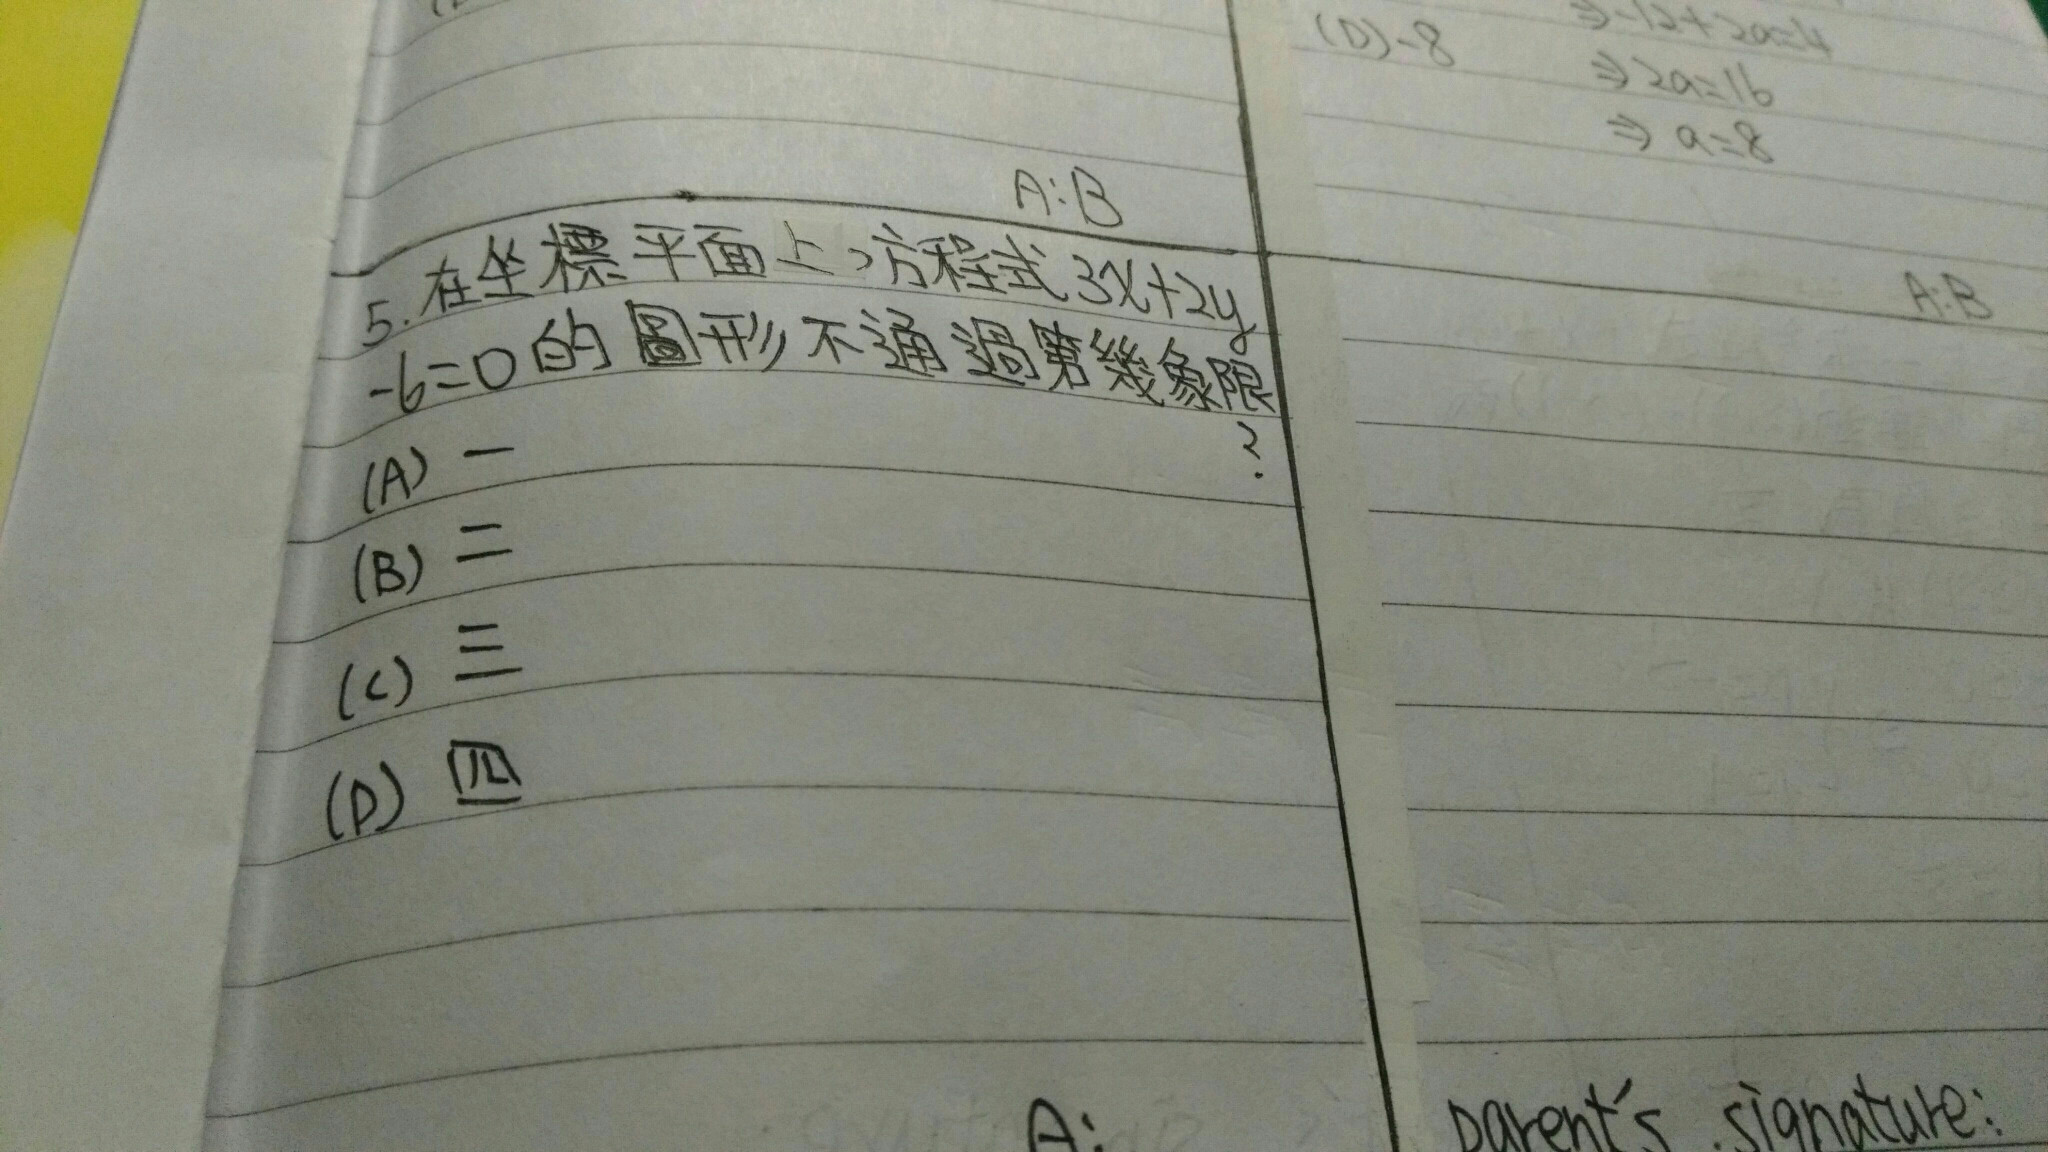 (D) -8
⇒ -12+2a=4
⇒ 2a=16
⇒ a=8
A:B
5.在坐標平面上,方程式3x+2y
-6=0的圖形不通過第幾象限
?
(A) 一
(B) 二
(C) 三
(D) 四
A:B
A:
parent's signature: